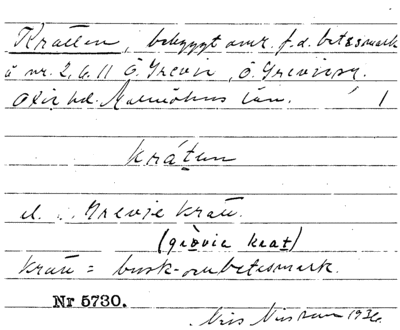 Kratten, bebyggt omr. f.d. betesmark
å nr. 2, 6, 11 Ö. Grevie, Ö. Grevie sn.
Oxie hd. Malmöhus län. 1
kråtən
el. Grevie kratt.
kratt = busk- betesmark.
Nr 5730.
Nils 1936.